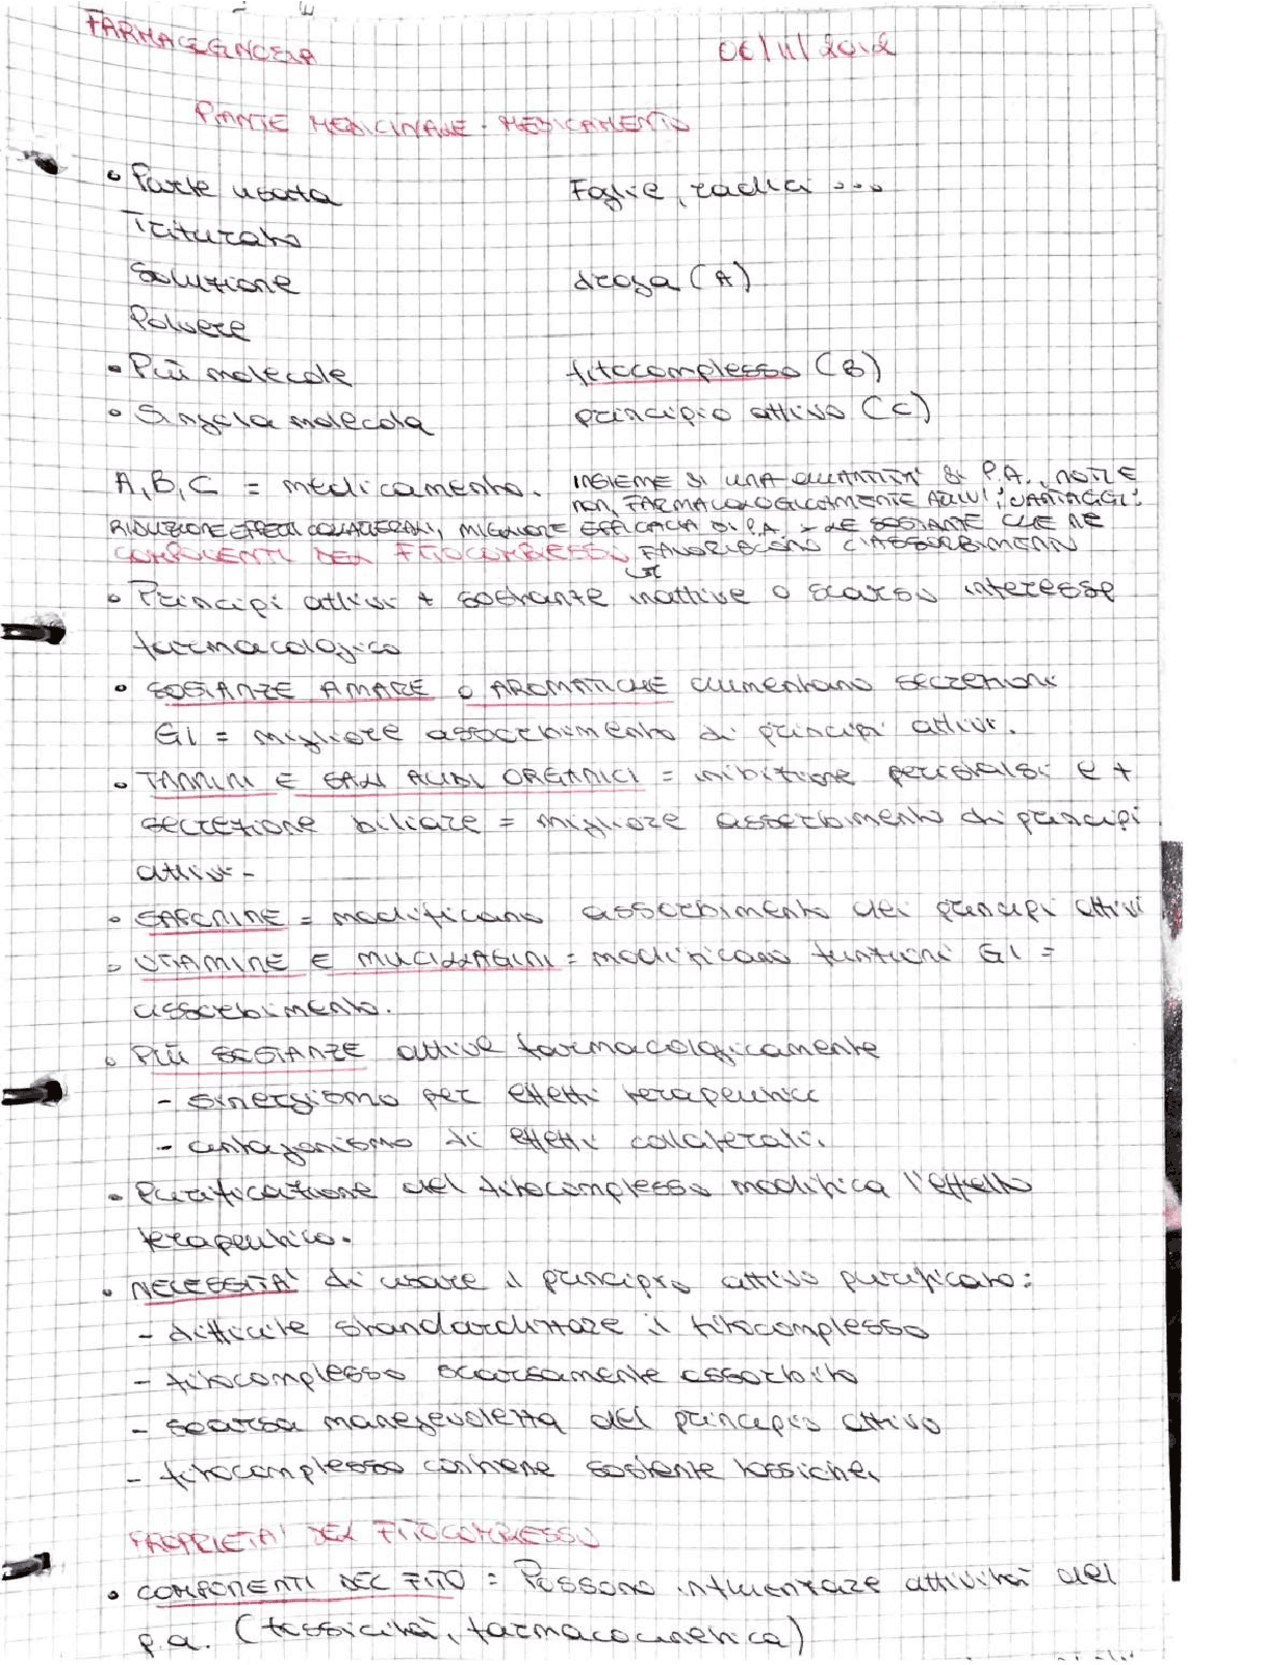 FARMACOGNOSIA 06/11/2012
PIANTE MEDICINALE - MEDICAMENTO
• Parte usata Foglie, radici ...
Triturato
Soluzione droga (A)
Polvere
• Più molecole fitocomplesso (B)
• Singola molecola principio attivo (C)
A, B, C = medicamento. INSIEME DI UNA QUANTITA' DI P.A., NOTI E
NON, FARMACOLOGICAMENTE ATTIVI; VANTAGGI:
RIDUZIONE EFFETTI COLLATERALI, MIGLIORE EFFICACIA DI P.A. LE SOSTANZE CHE NE
COMPONENTI DEL FITOCOMPLESSO FAVORISCONO L'ASSORBIMENTO
• Principi attivi + sostanze inattive o scarso interesse
farmacologico
• SOSTANZE AMARE o AROMATICHE aumentano secrezioni
GI = migliore assorbimento di principi attivi.
• TANNINI E SALI ACIDI ORGANICI = inibizione peristalsi e +
secrezione biliare = migliore assorbimento di principi
attivi-
• SAPONINE = modificano assorbimento dei principi attivi
• VITAMINE E MUCILLAGINI = modificano funzioni GI =
assorbimento.
• PIÙ SOSTANZE attive farmacologicamente
- sinergismo per effetti terapeutici
- antagonismo di effetti collaterali.
• Purificazione del fitocomplesso modifica l'effetto
terapeutico.
• NECESSITA' di usare il principio attivo purificato:
- difficile standardizzare il fitocomplesso
- fitocomplesso scarsamente assorbito
- scarsa maneggevolezza del principio attivo
- fitocomplesso contiene sostante tossiche.
PROPRIETA' DEL FITOCOMPLESSO
• COMPONENTI DEL FITO = Possono influenzare attività del
p.a. (tossicità, farmacocinetica)